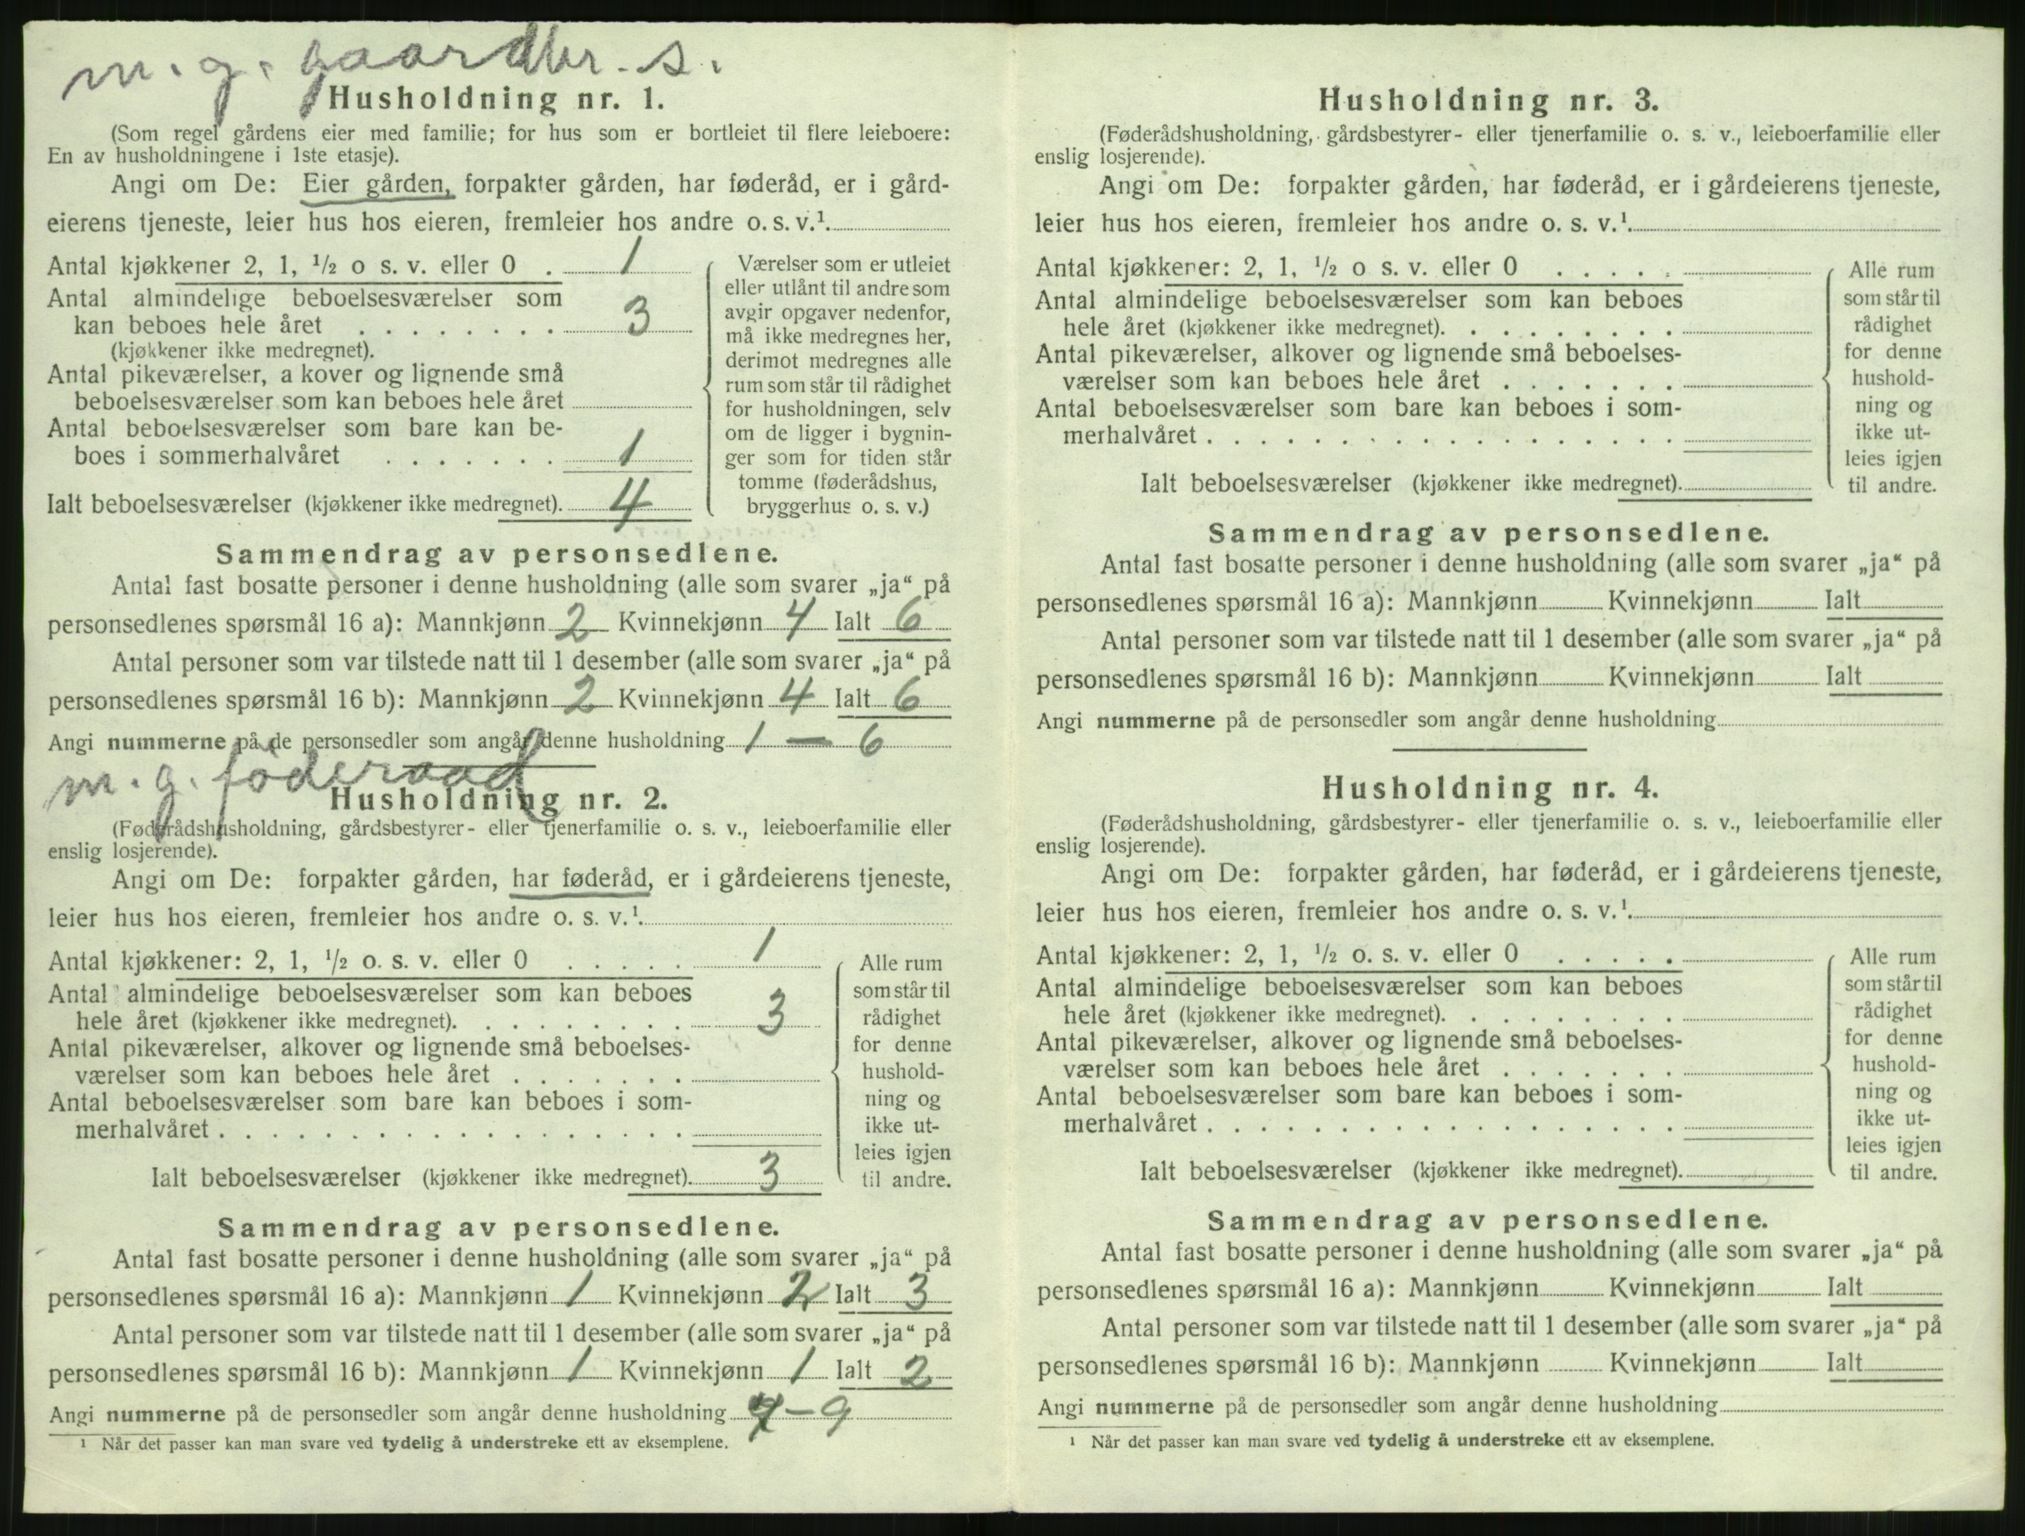 m. g. gaardbr. s.
Husholdning nr. 1.
(Som regel gårdens eier med familie; for hus som er bortleiet til flere leieboere:
En av husholdningene i 1ste etasje).
Angi om De: Eier gården, forpakter gården, har føderåd, er i gård-
eierens tjeneste, leier hus hos eieren, fremleier hos andre o. s. v.¹
Antal kjøkkener 2, 1, ½ o s. v. eller 0 . 1
Antal almindelige beboelsesværelser som
kan beboes hele året . . . . . . . . 3
(kjøkkener ikke medregnet).
Antal pikeværelser, a kover og lignende små
beboelsesværelser som kan beboes hele året
Antal beboelsesværelser som bare kan be-
boes i sommerhalvåret . . . . . . . 1
Ialt beboelsesværelser (kjøkkener ikke medregnet). 4
Værelser som er utleiet
eller utlånt til andre som
avgir opgaver nedenfor,
må ikke medregnes her,
derimot medregnes alle
rum som står til rådighet
for husholdningen, selv
om de ligger i bygnin-
ger som for tiden står
tomme (føderådshus,
bryggerhus o. s. v.)
Sammendrag av personsedlene.
Antal fast bosatte personer i denne husholdning (alle som svarer „ja“ på
personsedlenes spørsmål 16 a): Mannkjønn 2 Kvinnekjønn 4 Ialt 6
Antal personer som var tilstede natt til 1 desember (alle som svarer „ja“ på
personsedlenes spørsmål 16 b): Mannkjønn 2 Kvinnekjønn 4 Ialt 6
Angi nummerne på de personsedler som angår denne husholdning 1 — 6
m. g. føderaad
Husholdning nr. 2.
(Føderådshusholdning, gårdsbestyrer- eller tjenerfamilie o. s. v., leieboerfamilie eller
enslig losjerende).
Angi om De: forpakter gården, har føderåd, er i gårdeierens tjeneste,
leier hus hos eieren, fremleier hos andre o. s. v.¹
Antal kjøkkener: 2, 1, ½ o. s. v. eller 0 . . . . . 1
Antal almindelige beboelsesværelser som kan beboes
hele året (kjøkkener ikke medregnet). . . . . . . . . 3
Antal pikeværelser, alkover og lignende små beboelses-
værelser som kan beboes hele året . . . . . . .
Antal beboelsesværelser som bare kan beboes i som-
merhalvåret . . . . . . . . . . . . . . . . . .
Ialt beboelsesværelser (kjøkkener ikke medregnet). 3
Alle rum
som står til
rådighet
for denne
hushold-
ning og
ikke ut-
leies igjen
til andre.
Sammendrag av personsedlene.
Antal fast bosatte personer i denne husholdning (alle som svarer „ja“ på
personsedlenes spørsmål 16 a): Mannkjønn 1 Kvinnekjønn 2 Ialt 3
Antal personer som var tilstede natt til 1 desember (alle som svarer „ja“ på
personsedlenes spørsmål 16 b): Mannkjønn 1 Kvinnekjønn 1 Ialt 2
Angi nummerne på de personsedler som angår denne husholdning 7 — 9
¹ Når det passer kan man svare ved tydelig å understreke ett av eksemplene.
Husholdning nr. 3.
(Føderådshusholdning, gårdsbestyrer- eller tjenerfamilie o. s. v., leieboerfamilie eller
enslig losjerende).
Angi om De: forpakter gården, har føderåd, er i gårdeierens tjeneste,
leier hus hos eieren, fremleier hos andre o. s. v.¹
Antal kjøkkener: 2, 1, ½ o s. v. eller 0 . . . . .
Antal almindelige beboelsesværelser som kan beboes
hele året (kjøkkener ikke medregnet). . . . . . . . .
Antal pikeværelser, alkover og lignende små beboelses-
værelser som kan beboes hele året . . . . . . .
Antal beboelsesværelser som bare kan beboes i som-
merhalvåret . . . . . . . . . . . . . . . . . .
Ialt beboelsesværelser (kjøkkener ikke medregnet).
Alle rum
som står til
rådighet
for denne
hushold-
ning og
ikke ut-
leies igjen
til andre.
Sammendrag av personsedlene.
Antal fast bosatte personer i denne husholdning (alle som svarer „ja“ på
personsedlenes spørsmål 16 a): Mannkjønn Kvinnekjønn Ialt
Antal personer som var tilstede natt til 1 desember (alle som svarer „ja“ på
personsedlenes spørsmål 16 b): Mannkjønn Kvinnekjønn Ialt
Angi nummerne på de personsedler som angår denne husholdning
Husholdning nr. 4.
(Føderådshusholdning, gårdsbestyrer- eller tjenerfamilie o. s. v., leieboerfamilie eller
enslig losjerende).
Angi om De: forpakter gården, har føderåd, er i gårdeierens tjeneste,
leier hus hos eieren, fremleier hos andre o. s. v.¹
Antal kjøkkener: 2, 1, ½ o. s. v. eller 0 . . . . .
Antal almindelige beboelsesværelser som kan beboes
hele året (kjøkkener ikke medregnet). . . . . . . . .
Antal pikeværelser, alkover og lignende små beboelses-
værelser som kan beboes hele året . . . . . . .
Antal beboelsesværelser som bare kan beboes i som-
merhalvåret . . . . . . . . . . . . . . . . . .
Ialt beboelsesværelser (kjøkkener ikke medregnet).
Alle rum
som står til
rådighet
for denne
hushold-
ning og
ikke ut-
leies igjen
til andre.
Sammendrag av personsedlene.
Antal fast bosatte personer i denne husholdning (alle som svarer „ja“ på
personsedlenes spørsmål 16 a): Mannkjønn Kvinnekjønn Ialt
Antal personer som var tilstede natt til 1 desember (alle som svarer „ja“ på
personsedlenes spørsmål 16 b): Mannkjønn Kvinnekjønn Ialt
Angi nummerne på de personsedler som angår denne husholdning
¹ Når det passer kan man svare ved tydelig å understreke ett av eksemplene.